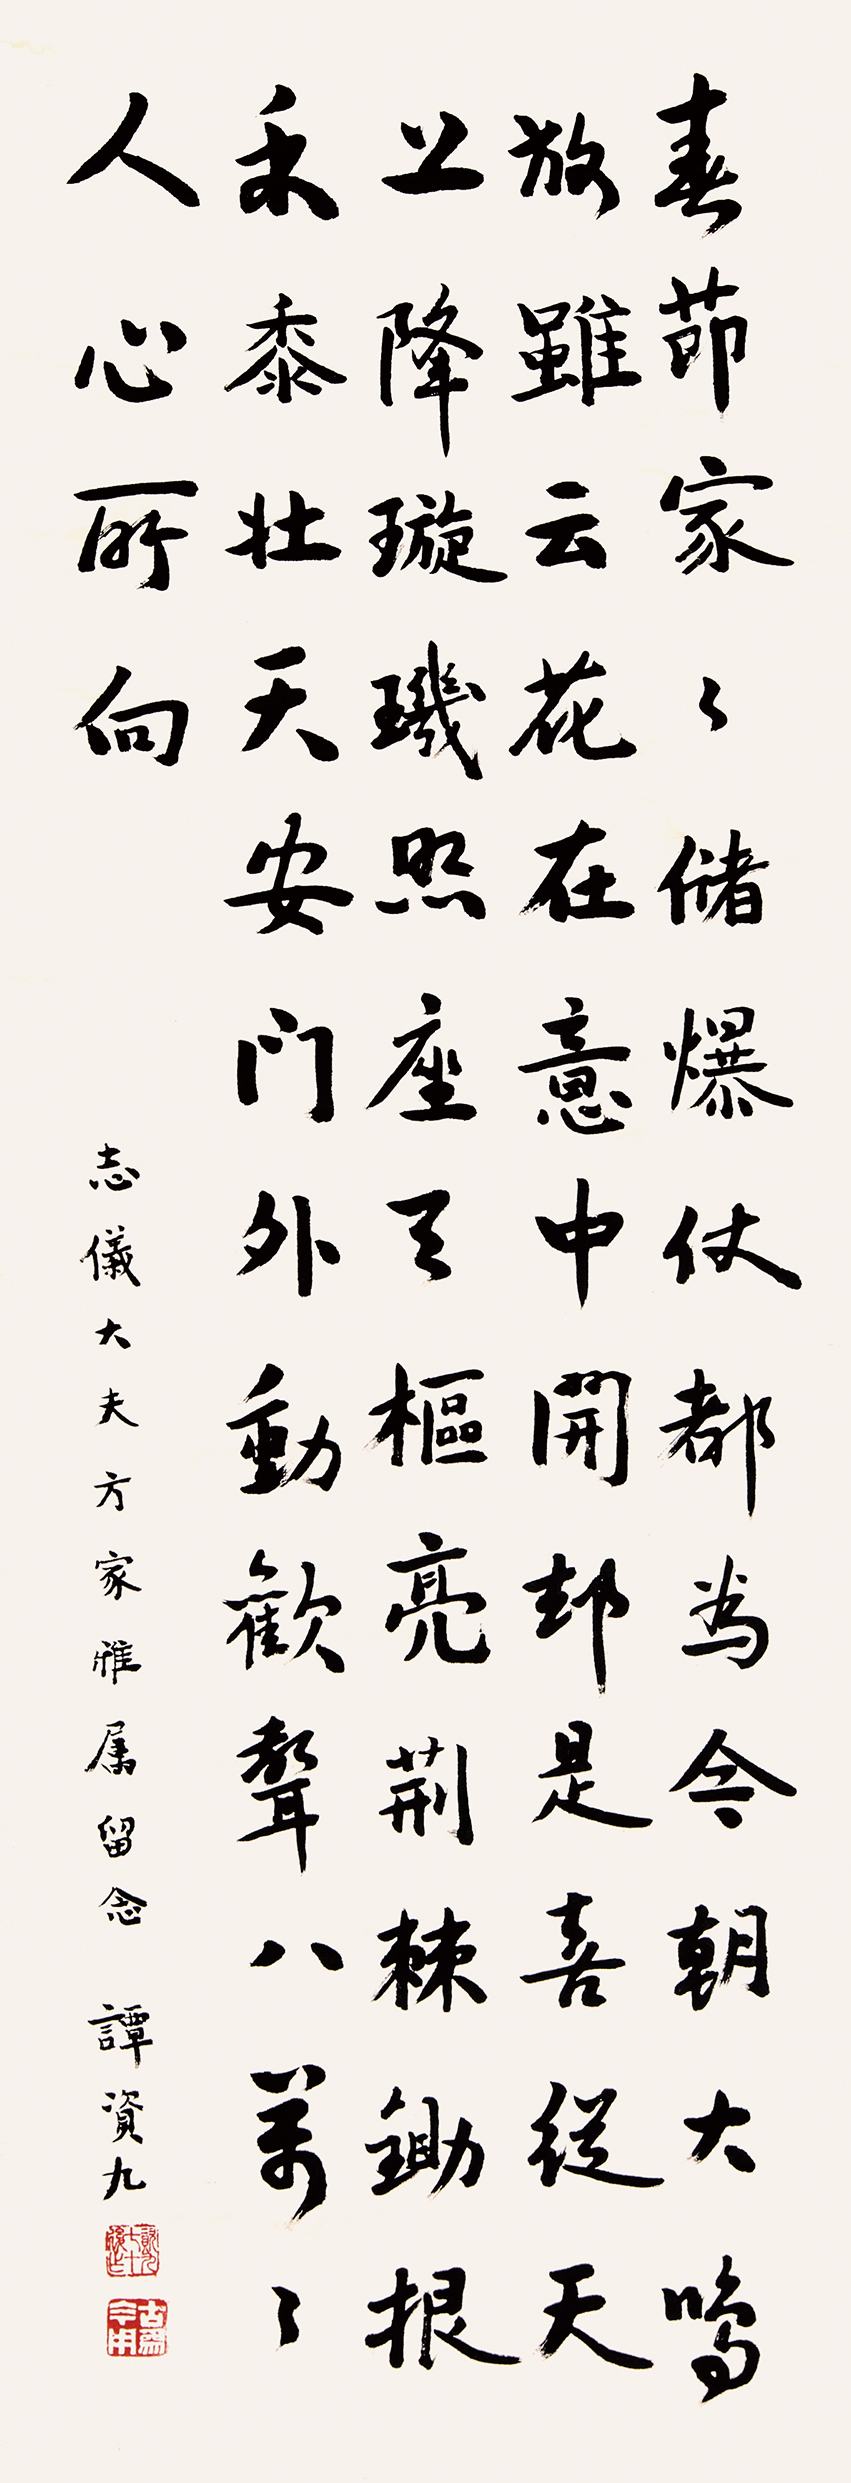 春節家〻儲爆仗都為今朝大鳴
放雖云花在意中開却是喜從天
上降璇璣照座天樞亮荊棘鋤根
禾黍壯天安門外動歡聲八萬〻
人心所向
志儀大夫方家雅属留念 譚資九
古為今用